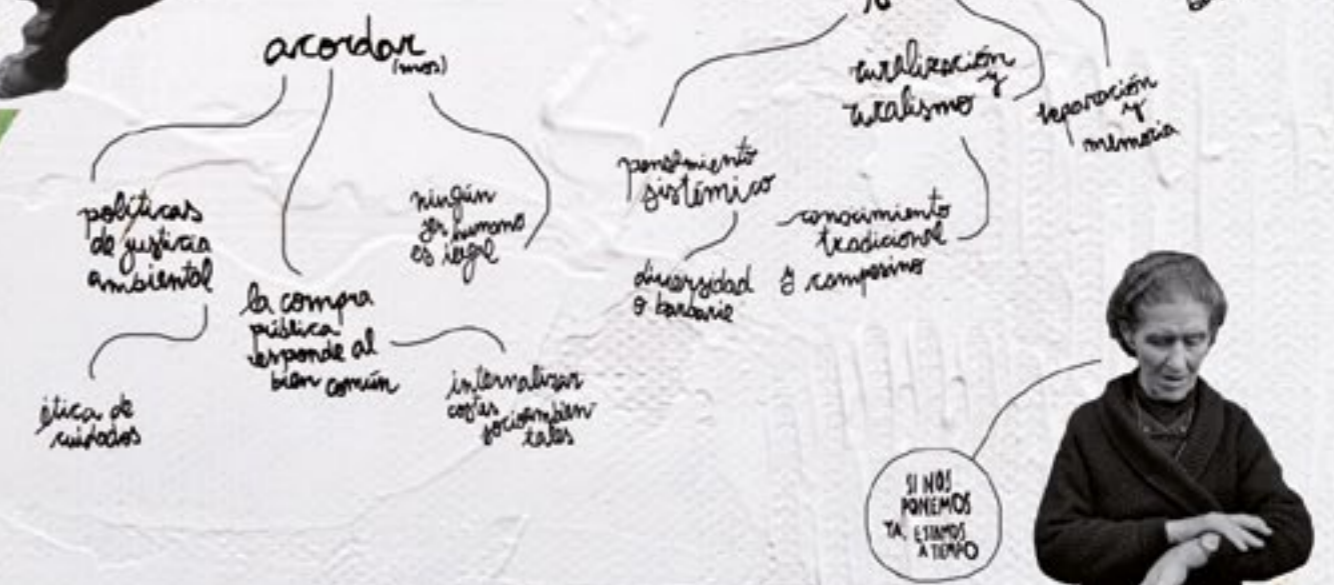 acordar
(mos)
políticas
de justicia
ambiental
ética de
cuidados
la compra
pública
responde al
bien común
internalizar
costes
socioambien-
tales
ningún
ser humano
es ilegal
pensamiento
sistémico
diversidad
o barbarie
ruralización
y
ruralismo
conocimiento
tradicional
y campesino
reparación
y
memoria
SI NOS
PONEMOS
YA, ESTAMOS
A TIEMPO